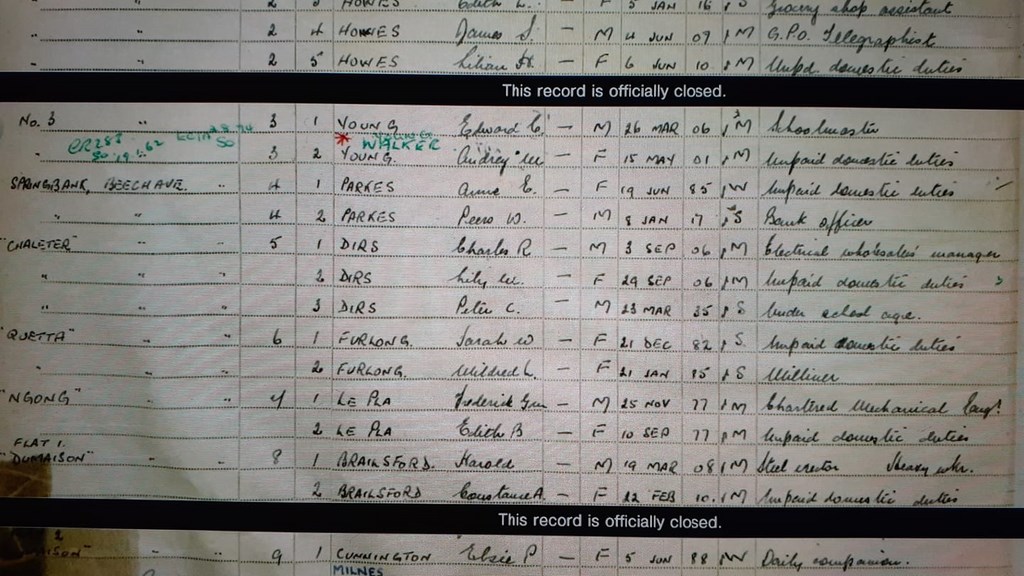 2 3 HOWES Edith L. — F 5 JAN 16 S Grocery shop assistant
" 2 4 HOWES James S. — M 4 JUN 09 M G.P.O. Telegraphist
" 2 5 HOWES Lilian — F 6 JUN 10 M Unpd. domestic duties
This record is officially closed.
No. 3 " 3 1 YOUNG Edward C. — M 26 MAR 06 M Schoolmaster
CR283 WALKER
" 3 2 YOUNG. Audrey — F 15 MAY 01 M Unpaid domestic duties
SPRINGBANK, BEECH AVE. 4 1 PARKES Anne E. — F 19 JUN 85 W Unpaid domestic duties
" " 4 2 PARKES Peers W. — M 8 JAN 17 S Bank officer
"CHALETER" " " 5 1 DIRS Charles R — M 3 SEP 06 M Electrical wholesalers manager
" " 2 DIRS Lily — F 29 SEP 06 M Unpaid domestic duties
" " 3 DIRS Peter C. M 23 MAR 35 S Under school age.
"QUETTA" " 6 1 FURLONG. Sarah W — F 21 DEC 82 S. Unpaid domestic duties
" " 2 FURLONG. Mildred L. F 21 JAN 85 S Milliner
"NGONG" " 7 1 LE PLA Frederick — M 25 NOV 77 M Chartered Mechanical Eng.
2 LE PLA Edith B — F 10 SEP 77 M Unpaid domestic duties
FLAT 1.
"DUMAISON" " 8 1 BRAILSFORD. Harold — M 19 MAR 08 M Steel erector Heavy wkr.
2 BRAILSFORD Constance A. — F 22 FEB 10. M Unpaid domestic duties
This record is officially closed.
2
" " 9 1 CUNNINGTON Elsie P — F 5 JUN 88 W Daily companion.
MILNES